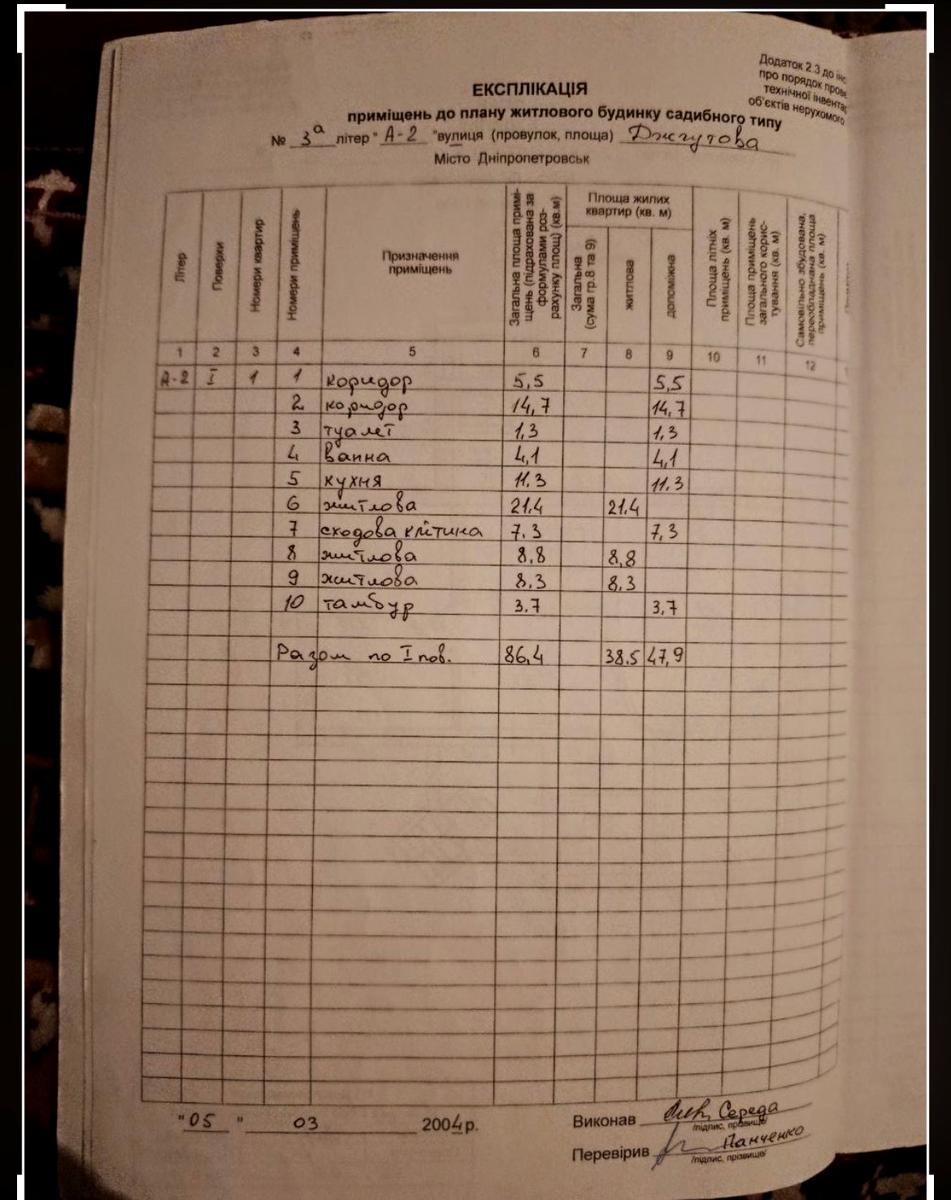 Додаток 2.3 до
про порядок
технічної
об'єктів нерухомого
ЕКСПЛІКАЦІЯ
приміщень до плану житлового будинку садибного типу
№ 3а літер "А-2" вулиця (провулок, площа) Джутова
Місто Дніпропетровськ
Літер
Поверхи
Номери квартир
Номери приміщень
Призначення приміщень
Загальна площа приміщень (підрахована за формулами розрахунку площ) (кв.м)
Площа жилих квартир (кв. м)
Загальна (сума гр.8 та 9)
житлова
допоміжна
Площа літніх приміщень (кв. м)
Площа приміщень загального користування (кв. м)
Самовільно збудована, переобладнана площа приміщень (кв. м)
1 2 3 4 5 6 7 8 9 10 11 12
А-2 І 1 1 коридор 5,5 5,5
2 коридор 14,7 14,7
3 туалет 1,3 1,3
4 ванна 4,1 4,1
5 кухня 11.3 11.3
6 житлова 21.4 21.4
7 сходова клітина 7.3 7,3
8 житлова 8,8 8,8
9 житлова 8.3 8.3
10 тамбур 3.7 3,7
Разом по І пов. 86,4 38.5 47,9
"05" 03 2004 р.
Виконав Середа
/підпис, прізвище/
Перевірив Панченко
/підпис, прізвище/